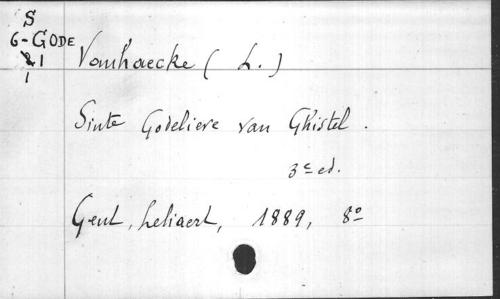 S
6-GODE
1
1
Vanhaecke ( L. )
Sinte Godelieve van Ghistel .
3e ed.
Gent, Leliaert, 1889, 8º